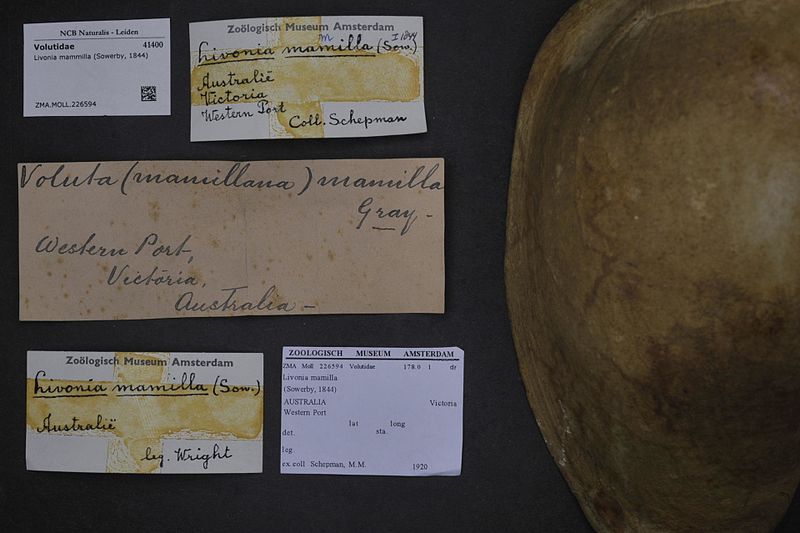 NCB Naturalis - Leiden
Volutidae 41400
Livonia mammilla (Sowerby, 1844)
ZMA.MOLL.226594
Zoölogisch Museum Amsterdam
Livonia mamilla (Sow.)
m I 1844
Australië
Victoria
Western Port
Coll. Schepman
Voluta (mamillana) mamilla
Gray -
Western Port,
Victoria,
Australia -
Zoölogisch Museum Amsterdam
Livonia mamilla (Sow.)
Australië
leg. Wright
ZOOLOGISCH MUSEUM AMSTERDAM
ZMA Moll 226594 Volutidae 178.0 1 dr
Livonia mamilla
(Sowerby, 1844)
AUSTRALIA Victoria
Western Port
lat long
det. sta.
leg
ex coll Schepman, M.M. 1920